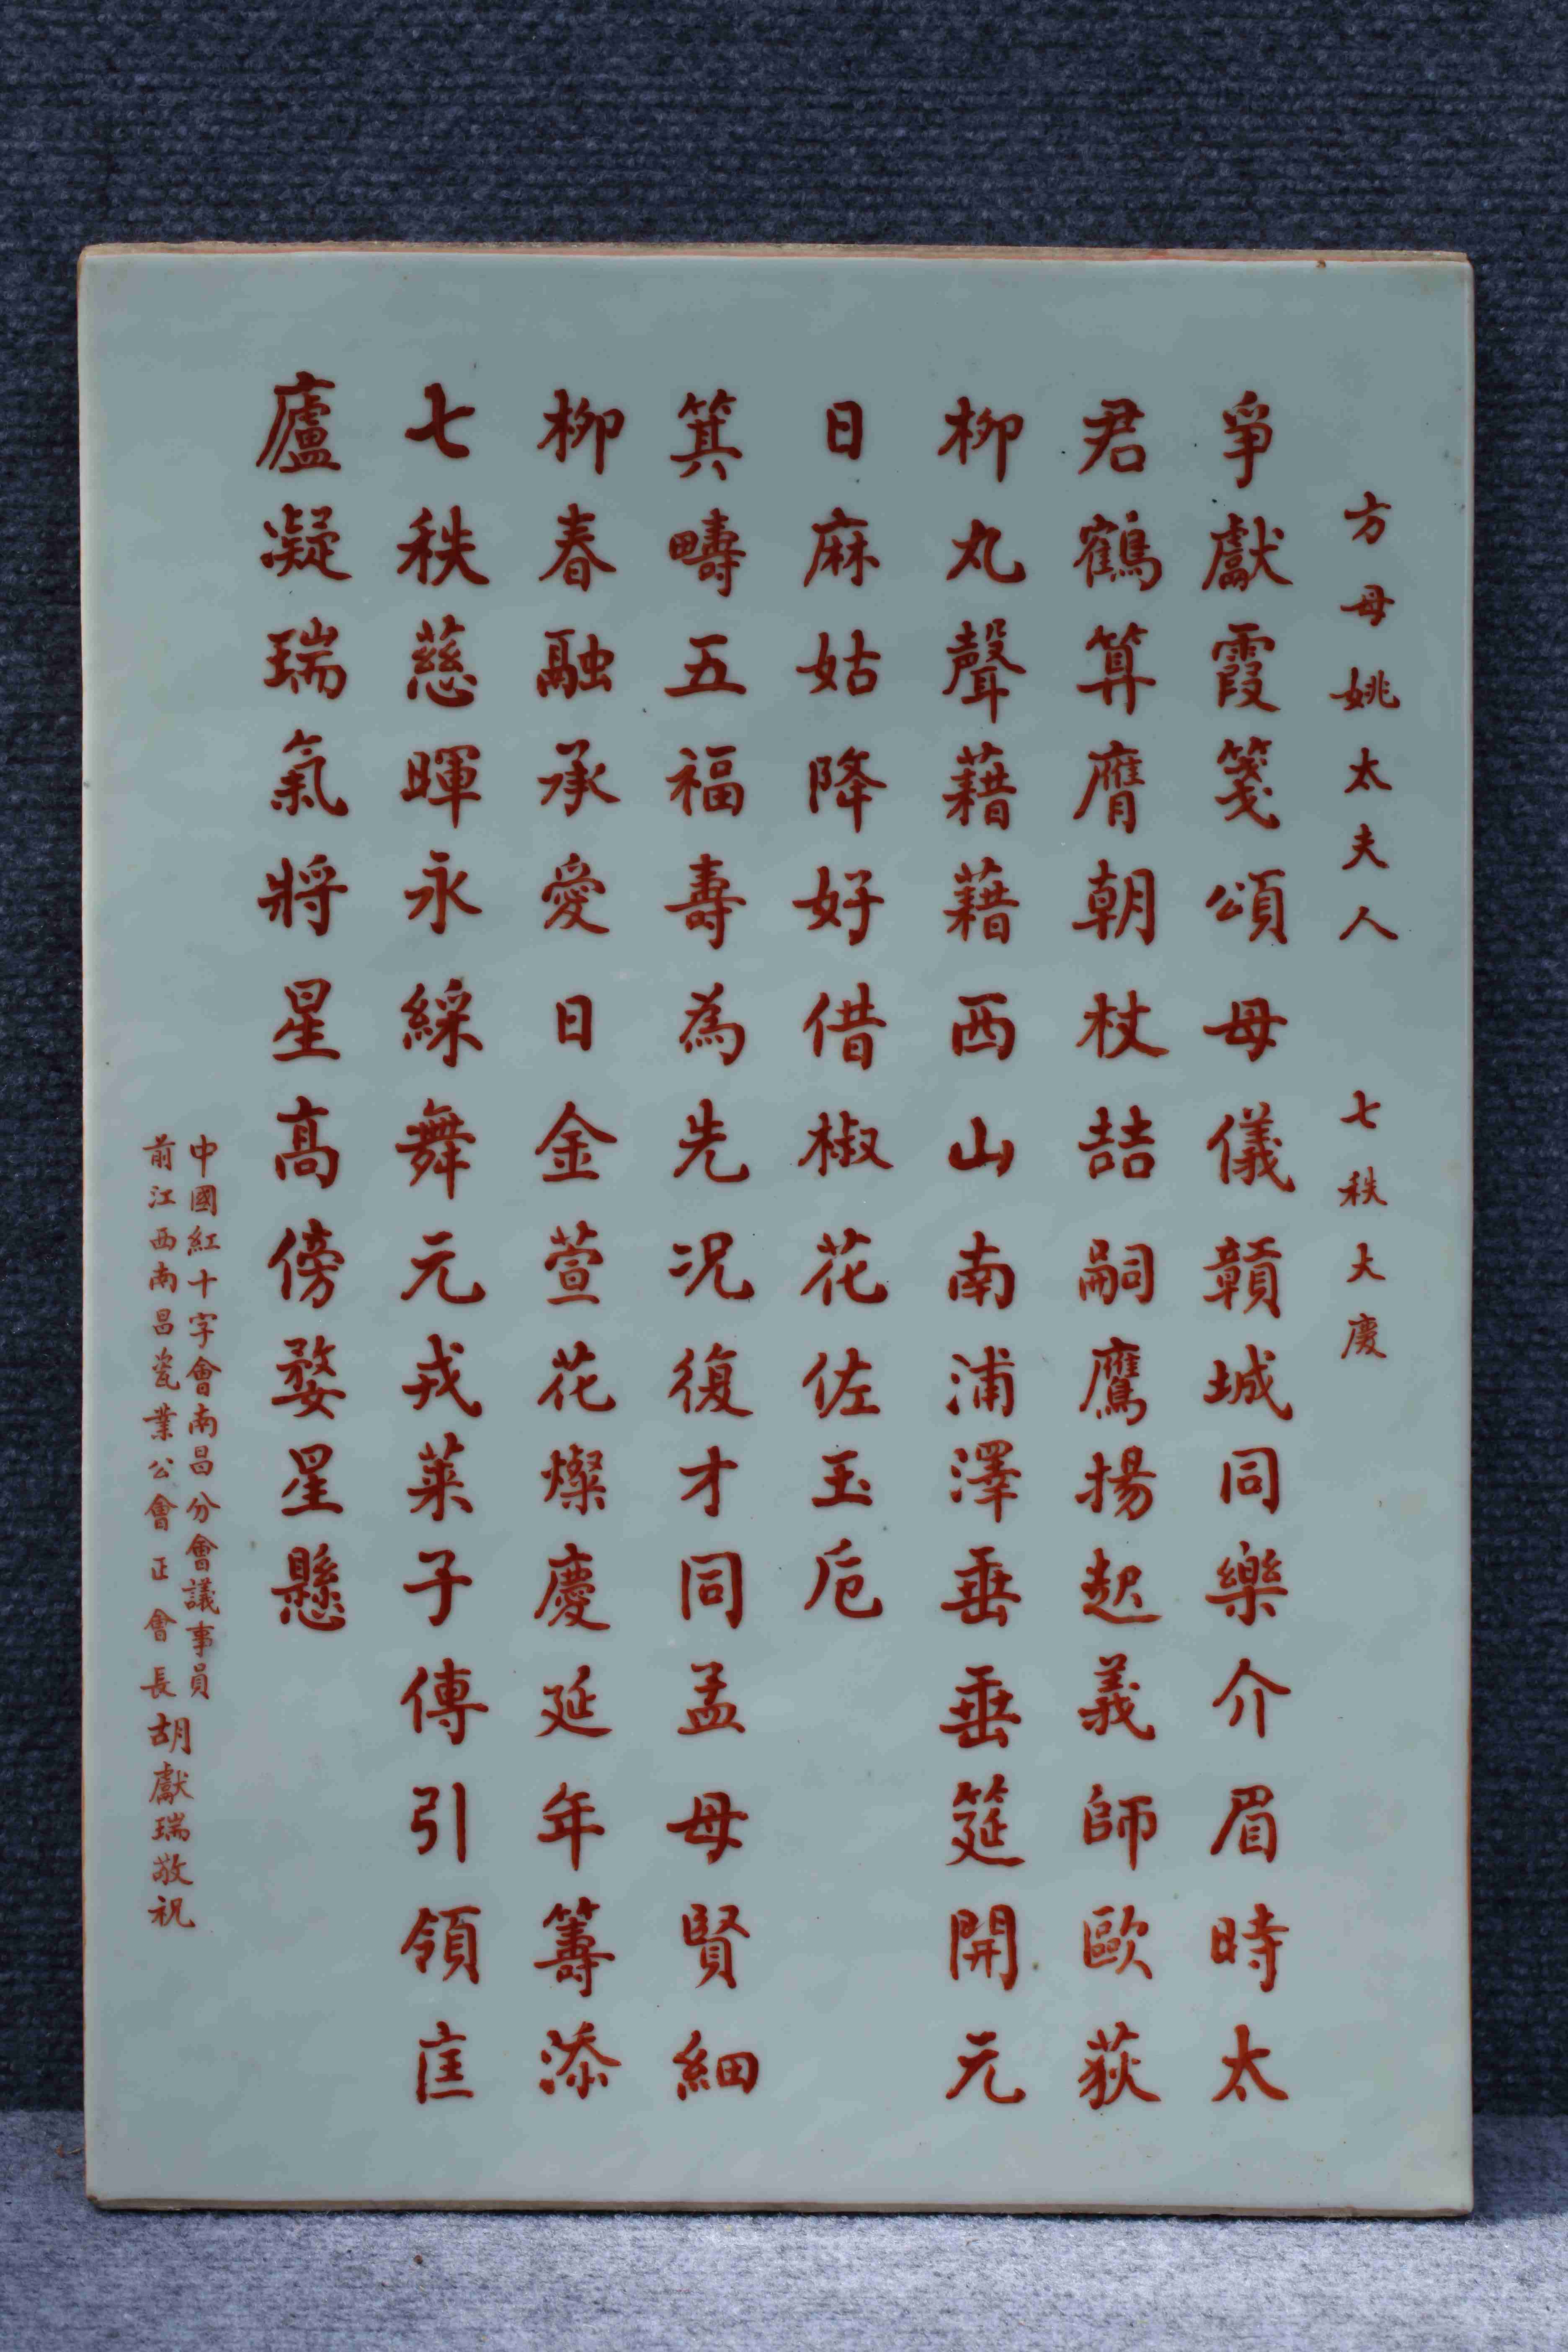 方母姚太夫人 七秩大慶
爭獻霞箋頌母儀贛城同樂介眉時太
君鶴算膺朝杖喆嗣鷹揚起義師歐荻
柳丸聲藉藉西山南浦澤垂垂筵開元
日麻姑降好借椒花佐玉卮
箕疇五福壽為先況復才同孟母賢細
柳春融承愛日金萱花燦慶延年籌添
七秩慈暉永綵舞元戎萊子傳引領匡
廬凝瑞氣將星高傍婺星懸
中國紅十字會南昌分會議事員
前江西南昌瓷業公會正會長胡獻瑞敬祝